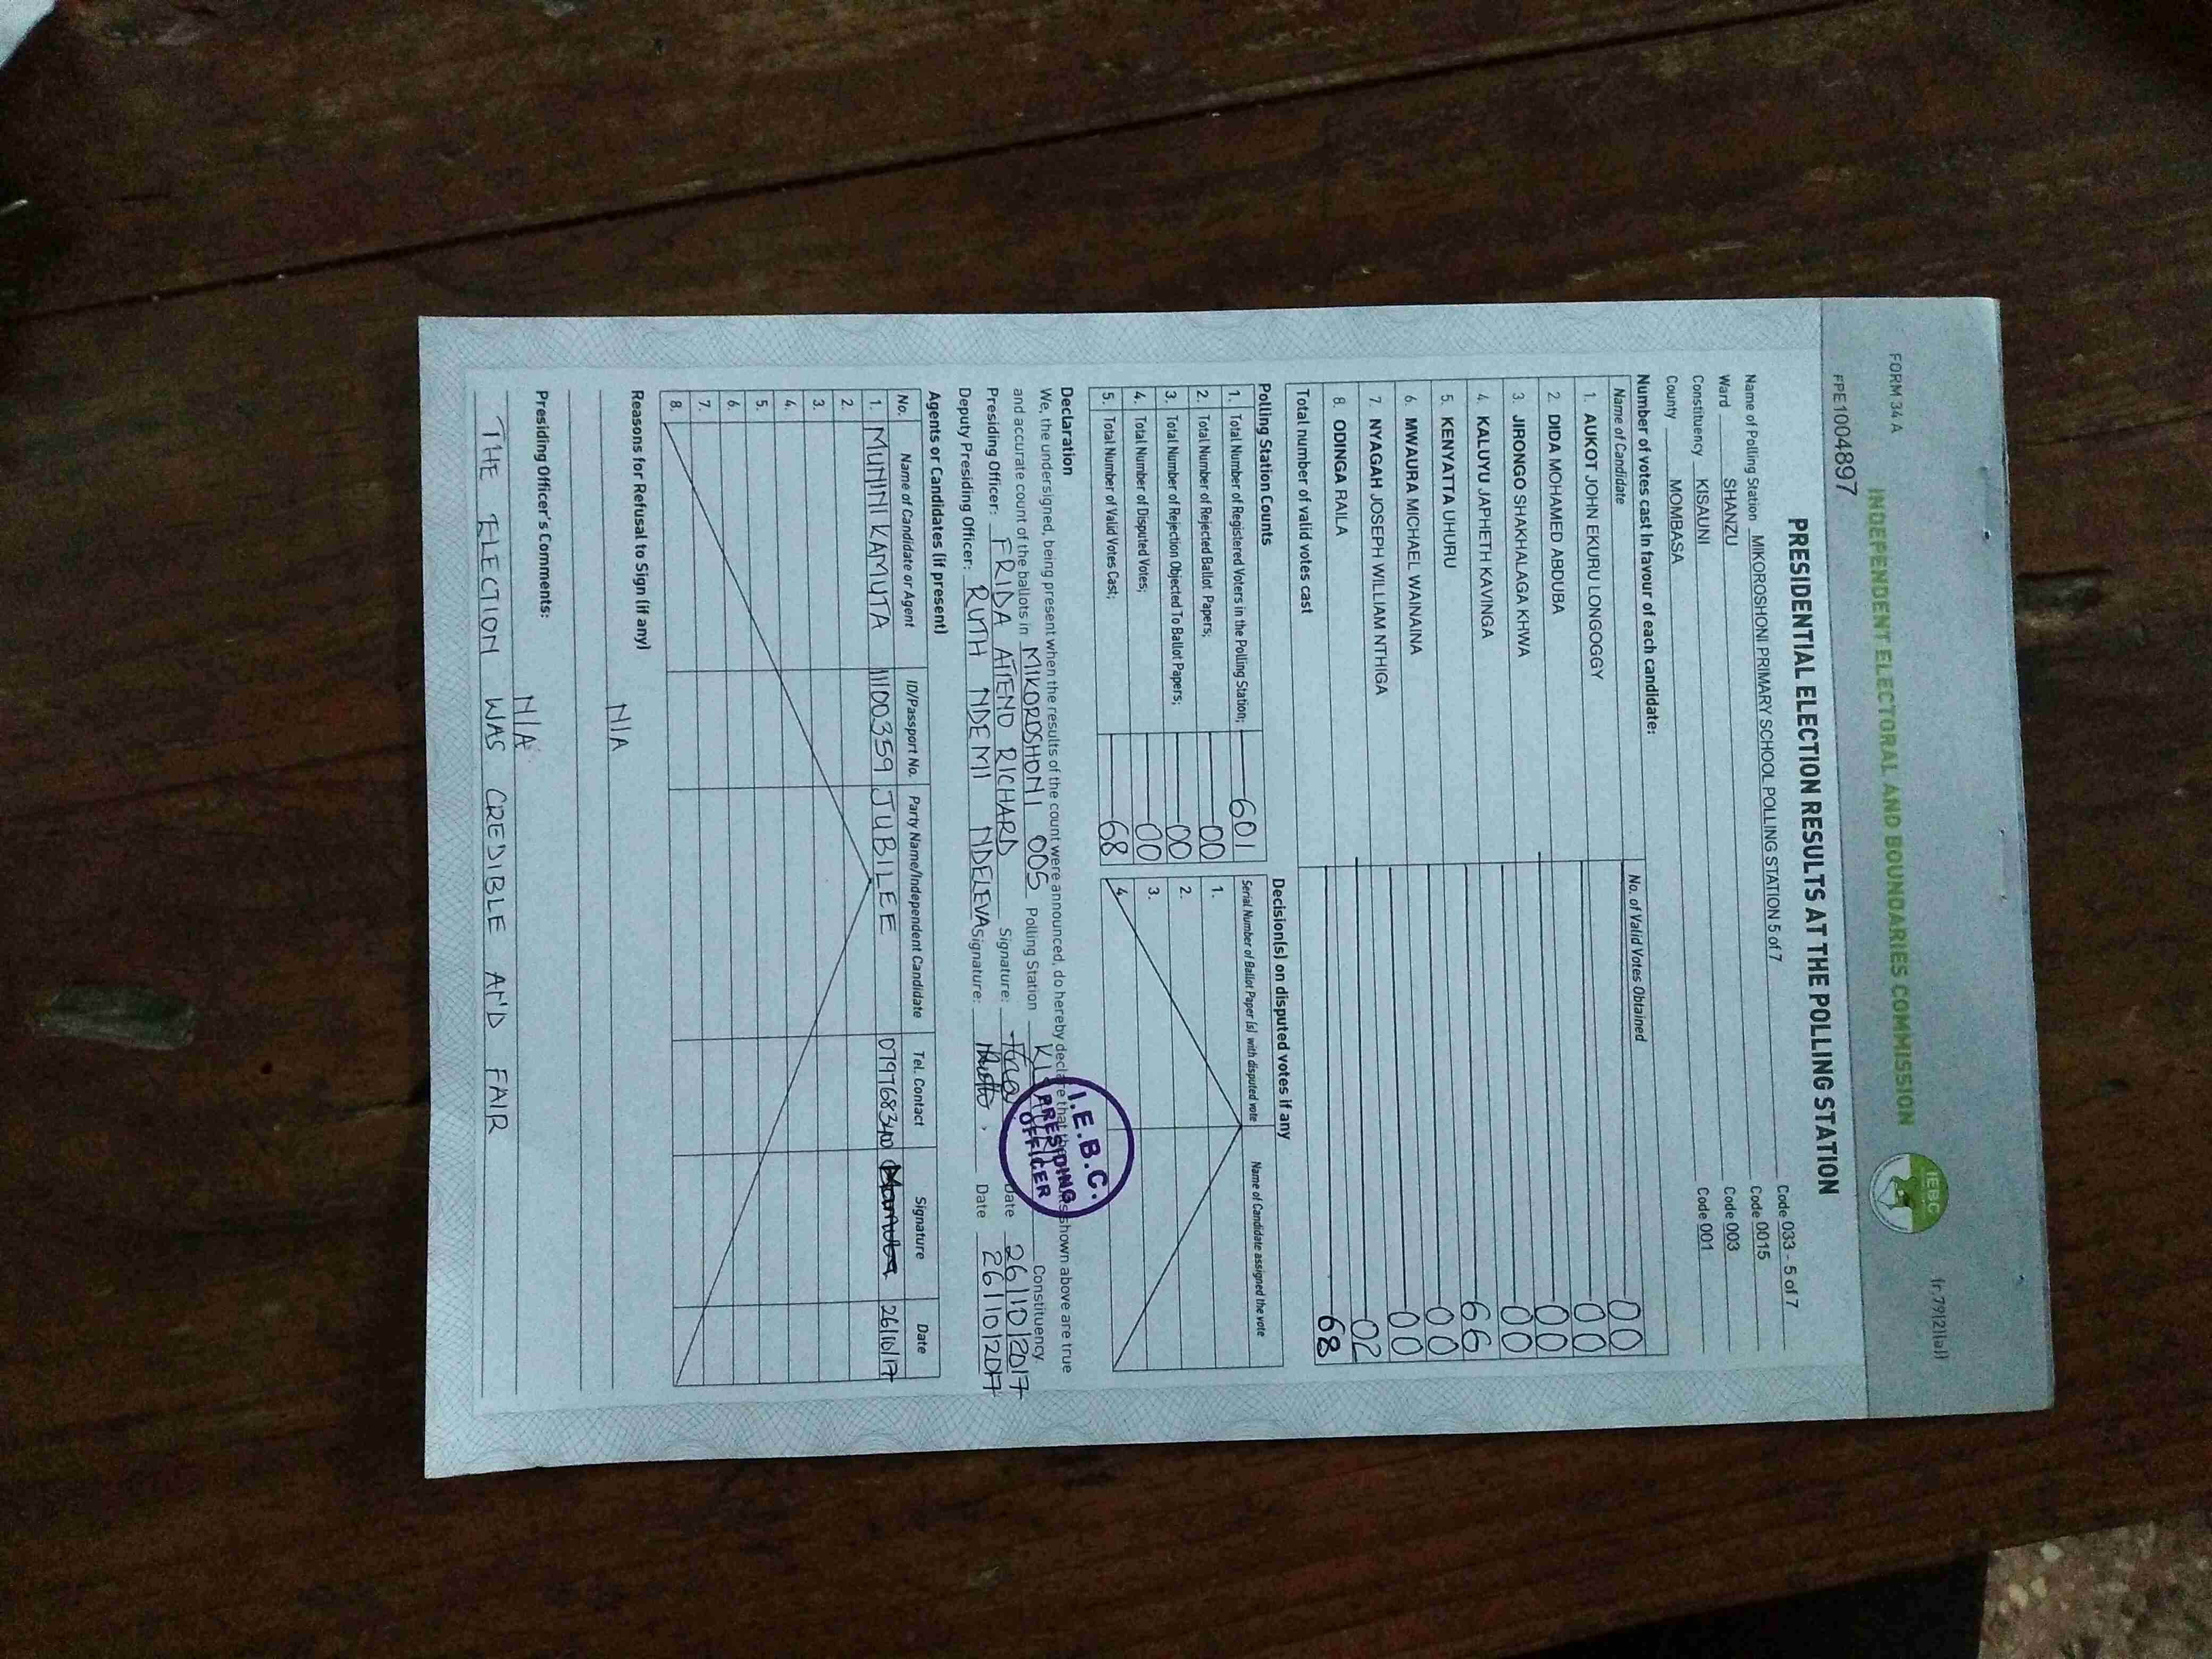 FORM 34 A
fr,79(2)(a))
INDEPENDENT ELECTORAL AND BOUNDARIES COMMISSION
IEBC
FPE1004897
PRESIDENTIAL ELECTION RESULTS AT THE POLLING STATION
Name of Polling Station MIKOROSHONI PRIMARY SCHOOL POLLING STATION 5 of 7 Code 033 - 5 of 7
Ward SHANZU Code 0015
Constituency KISAUNI Code 003
County MOMBASA Code 001
Number of votes cast in favour of each candidate:
Name of Candidate No. of Valid Votes Obtained
1. AUKOT JOHN EKURU LONGOGGY 00
2. DIDA MOHAMED ABDUBA 00
3. JIRONGO SHAKHALAGA KHWA 00
4. KALUYU JAPHETH KAVINGA 00
5. KENYATTA UHURU 66
6. MWAURA MICHAEL WAINAINA 00
7. NYAGAH JOSEPH WILLIAM NTHIGA 00
8. ODINGA RAILA 02
Total number of valid votes cast 68
Polling Station Counts
1. Total Number of Registered Voters in the Polling Station; 601
2. Total Number of Rejected Ballot Papers; 00
3. Total Number of Rejection Objected To Ballot Papers; 00
4. Total Number of Disputed Votes; 00
5. Total Number of Valid Votes Cast; 68
Decision(s) on disputed votes if any
Serial Number of Ballot Paper (s) with disputed vote Name of Candidate assigned the vote
1.
2.
3.
4.
Declaration
We, the undersigned, being present when the results of the count were announced, do hereby declare that the results shown above are true
and accurate count of the ballots in MIKOROSHONI 005 Polling Station Constituency
Presiding Officer: FRIDA ATIENO RICHARD Signature: Date 26/10/2017
Deputy Presiding Officer: RUTH NDEMI NDELEVA Signature: Date 26/10/2017
I.E.B.C.
PRESIDING
OFFICER
Agents or Candidates (if present)
No. Name of Candidate or Agent ID/Passport No. Party Name/Independent Candidate Tel. Contact Signature Date
1. MUNINI KAMUTA 11100359 JUBILEE 0797683340 26/10/17
2.
3.
4.
5.
6.
7.
8.
Reasons for Refusal to Sign (if any)
N/A
Presiding Officer's Comments:
N/A
THE ELECTION WAS CREDIBLE AND FAIR